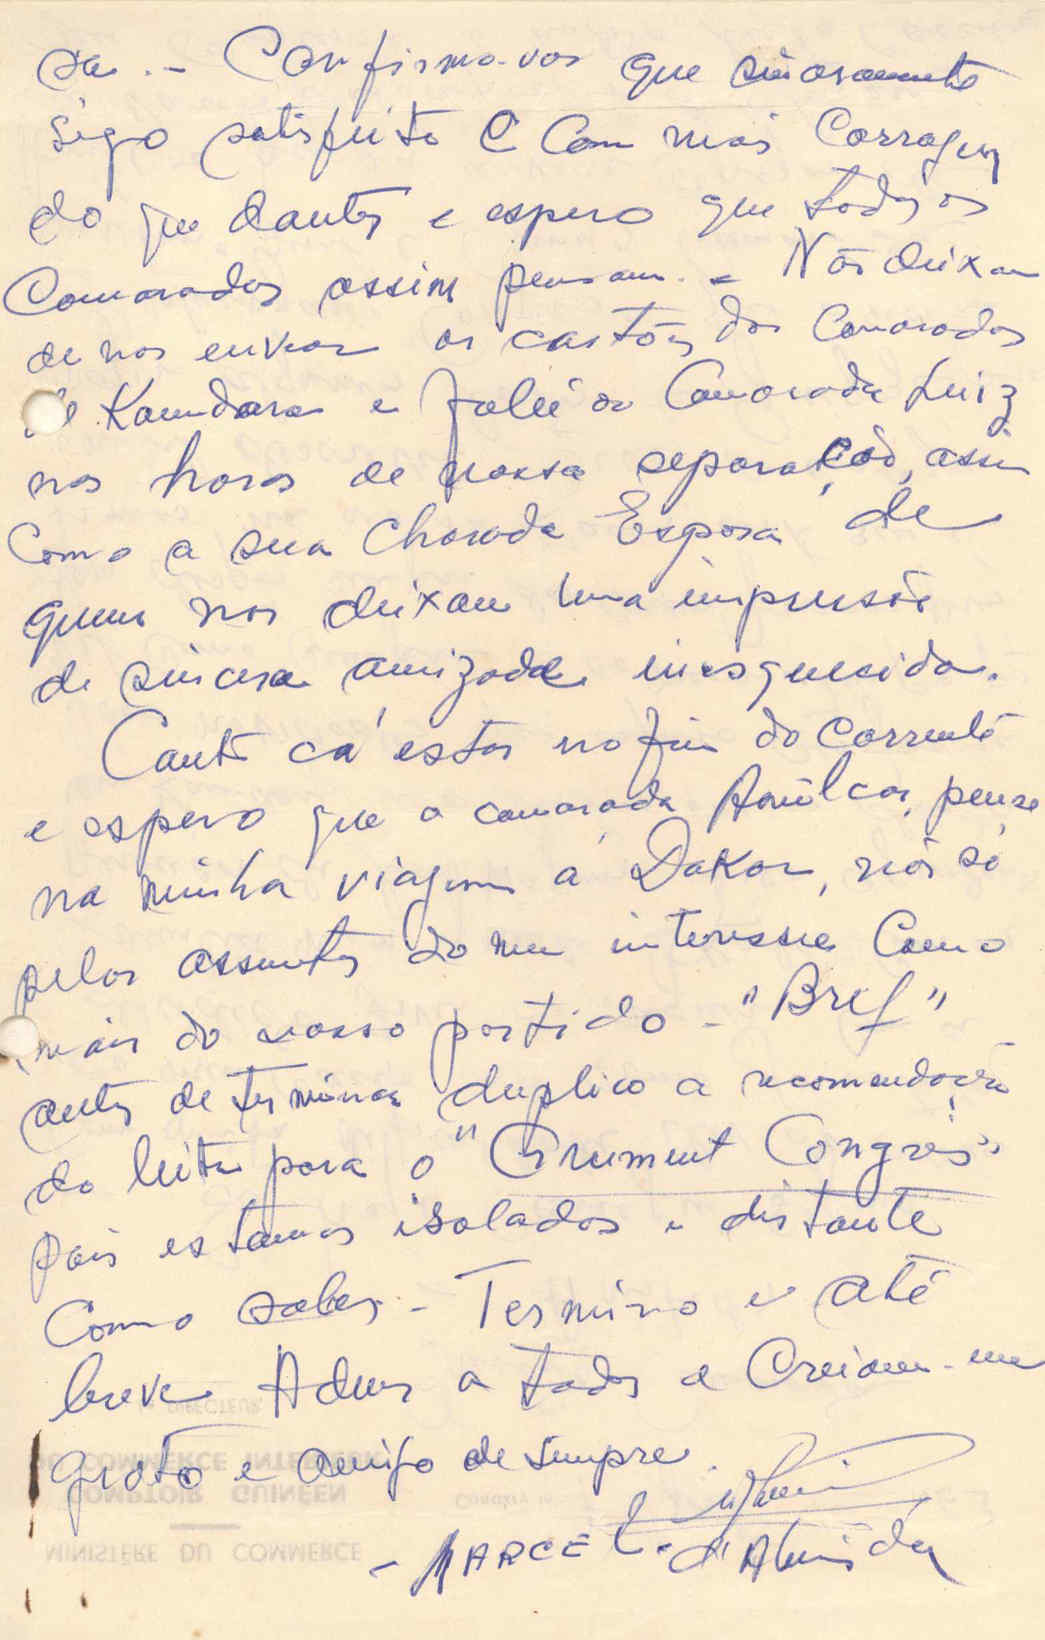 sa. - Confirmo-vos que sinceramente
Sigo satisfeito e com mais Corragem
do que dantes e espero que todos os
Camaradas assim pensam. - Não deixam
de nos enviar os cartões dos Camaradas
de Koundara e o Camarada Luiz
nas horas de nossa separação, assim
Como a sua Esposa, de
quem nos deixam uma impressão
de sincera amizade inesquecida.
cá estar no fim do corrente
e espero que o camarada Amilcar, pense
na minha viagem a Dakar, não só
pelos assuntos do meu interesse Como
mais do vosso partido - "Bref"
antes de terminar duplico a recomendação
do leite para o "Congrès"
pois estamos isolados e distante
Como sabes. - Termino e até
breve Adeus a todos e Creiam-me
grato e amigo de sempre.
- MARCEL. d'Almeida
LE DIRECTEUR
DU COMMERCE INTERIEUR
COMPTOIR GUINEEN
Conakry le
MINISTERE DU COMMERCE